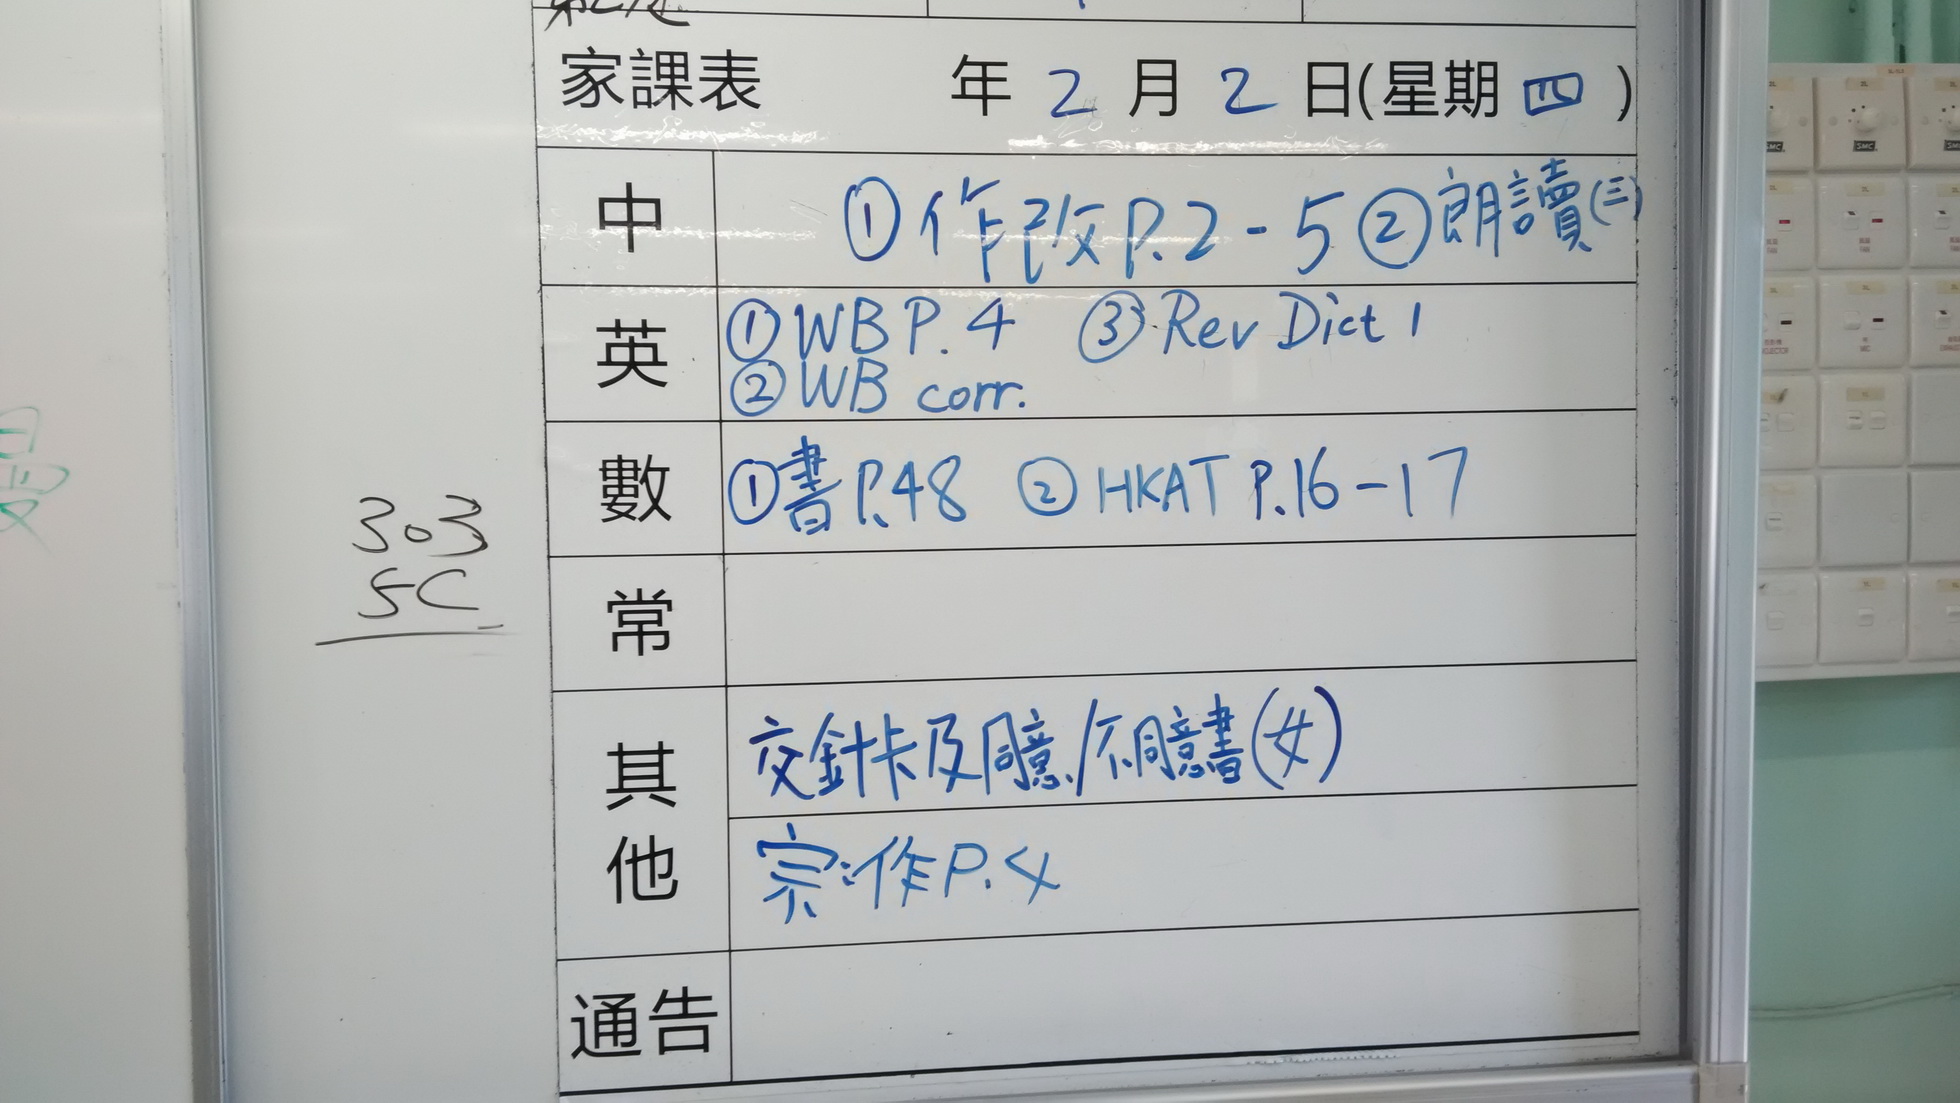 家課表 年 2 月 2 日(星期 四 )
中 ① 作改 P.2-5 ② 朗讀(三)
英 ① WB P.4 ③ Rev Dict 1
② WB corr.
數 ① 書 P.48 ② HKAT P.16-17
303
5C
常
其他 交針卡及同意/不同意書(女)
宗:作 P.4
通告